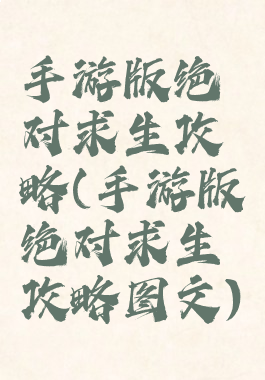 手游版绝
对求生攻
略(手游版
绝对求生
攻略图文)